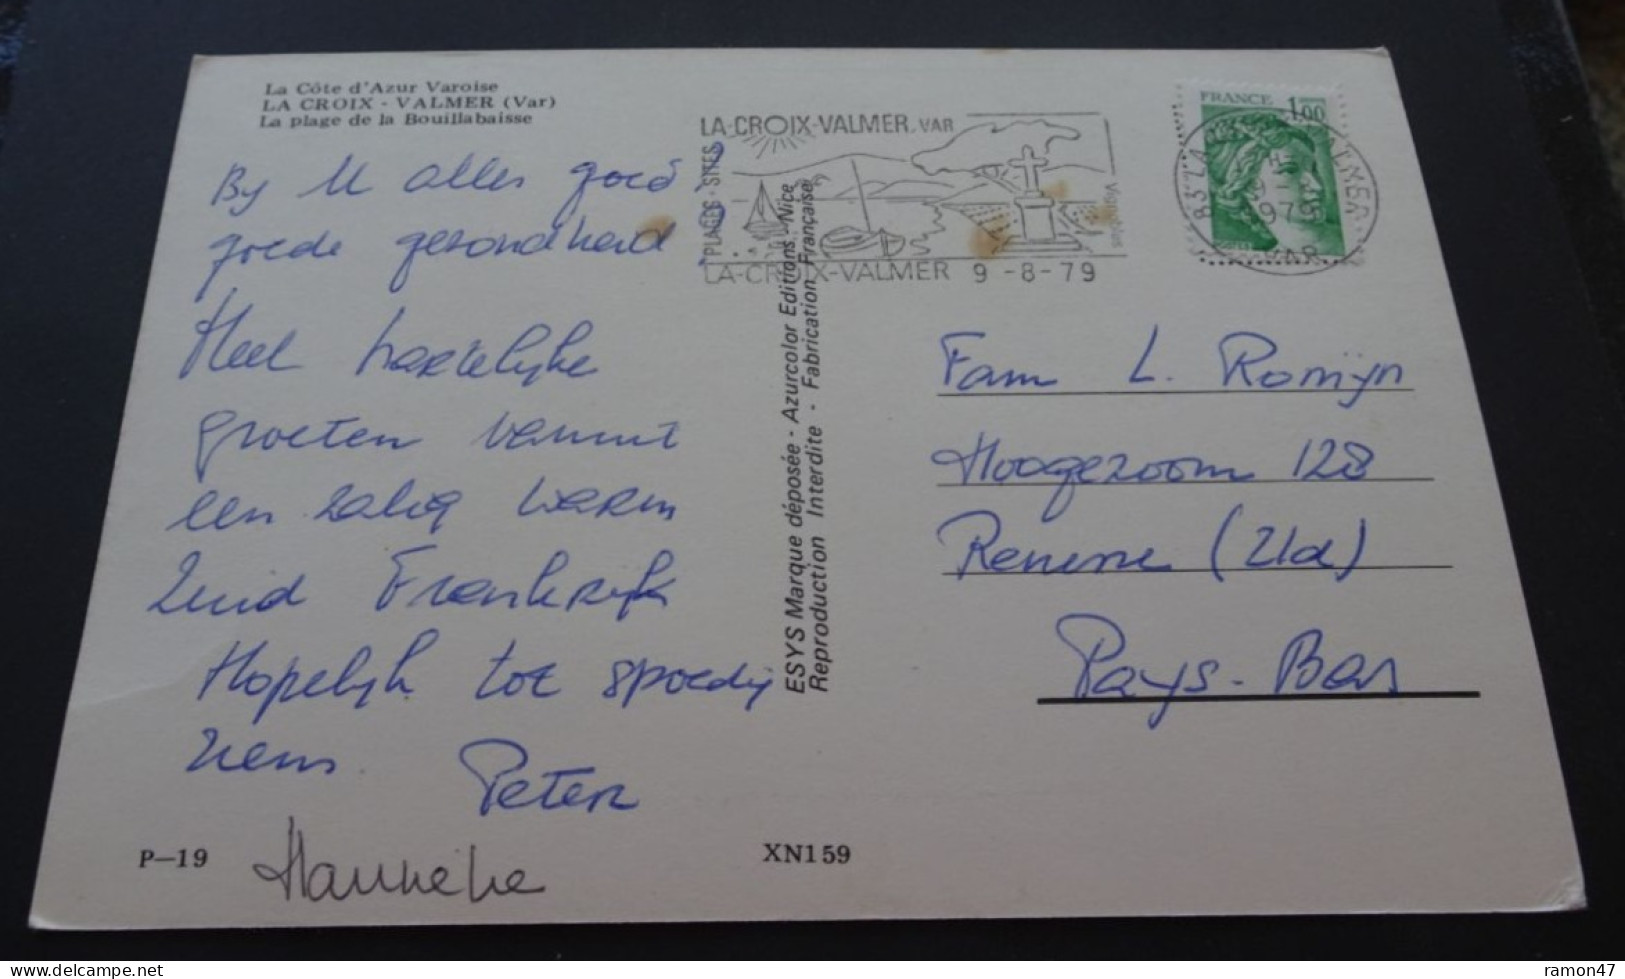 La Côte d'Azur Varoise
LA CROIX - VALMER (Var)
La plage de la Bouillabaisse
By U alles goed
goede gezondheid
Heel hartelijke
groeten vanuit
een zalig warm
Zuid Frankrijk
Hopelijk tot spoedig
ziens.
Peter
Hanneke
P—19
XN159
LA-CROIX-VALMER. VAR
PLAGES - SITES
Vignobles
LA-CROIX-VALMER 9 -8-79
ESYS Marque déposée - Azurcolor Editions. Nice
Reproduction Interdite - Fabrication Française
FRANCE 1,00
83 LA VALMER
9 -
1979
VAR
Fam L. Romijn
Hoogezoom 128
Renesse (Zld)
Pays-Bas
ramon47